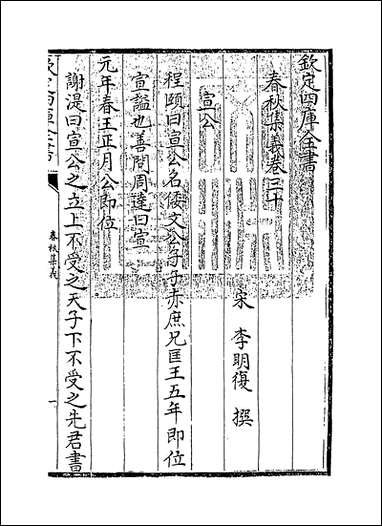 欽定四庫全書
春秋集義卷三十
宋 李明復 撰
宣公
程頤曰宣公名倭文公子子赤庶兄匡王五年即位
宣謚也善問周達曰宣
元年春王正月公即位
謝湜曰宣公之立上不受之天子下不受之先君書
春秋集義
一